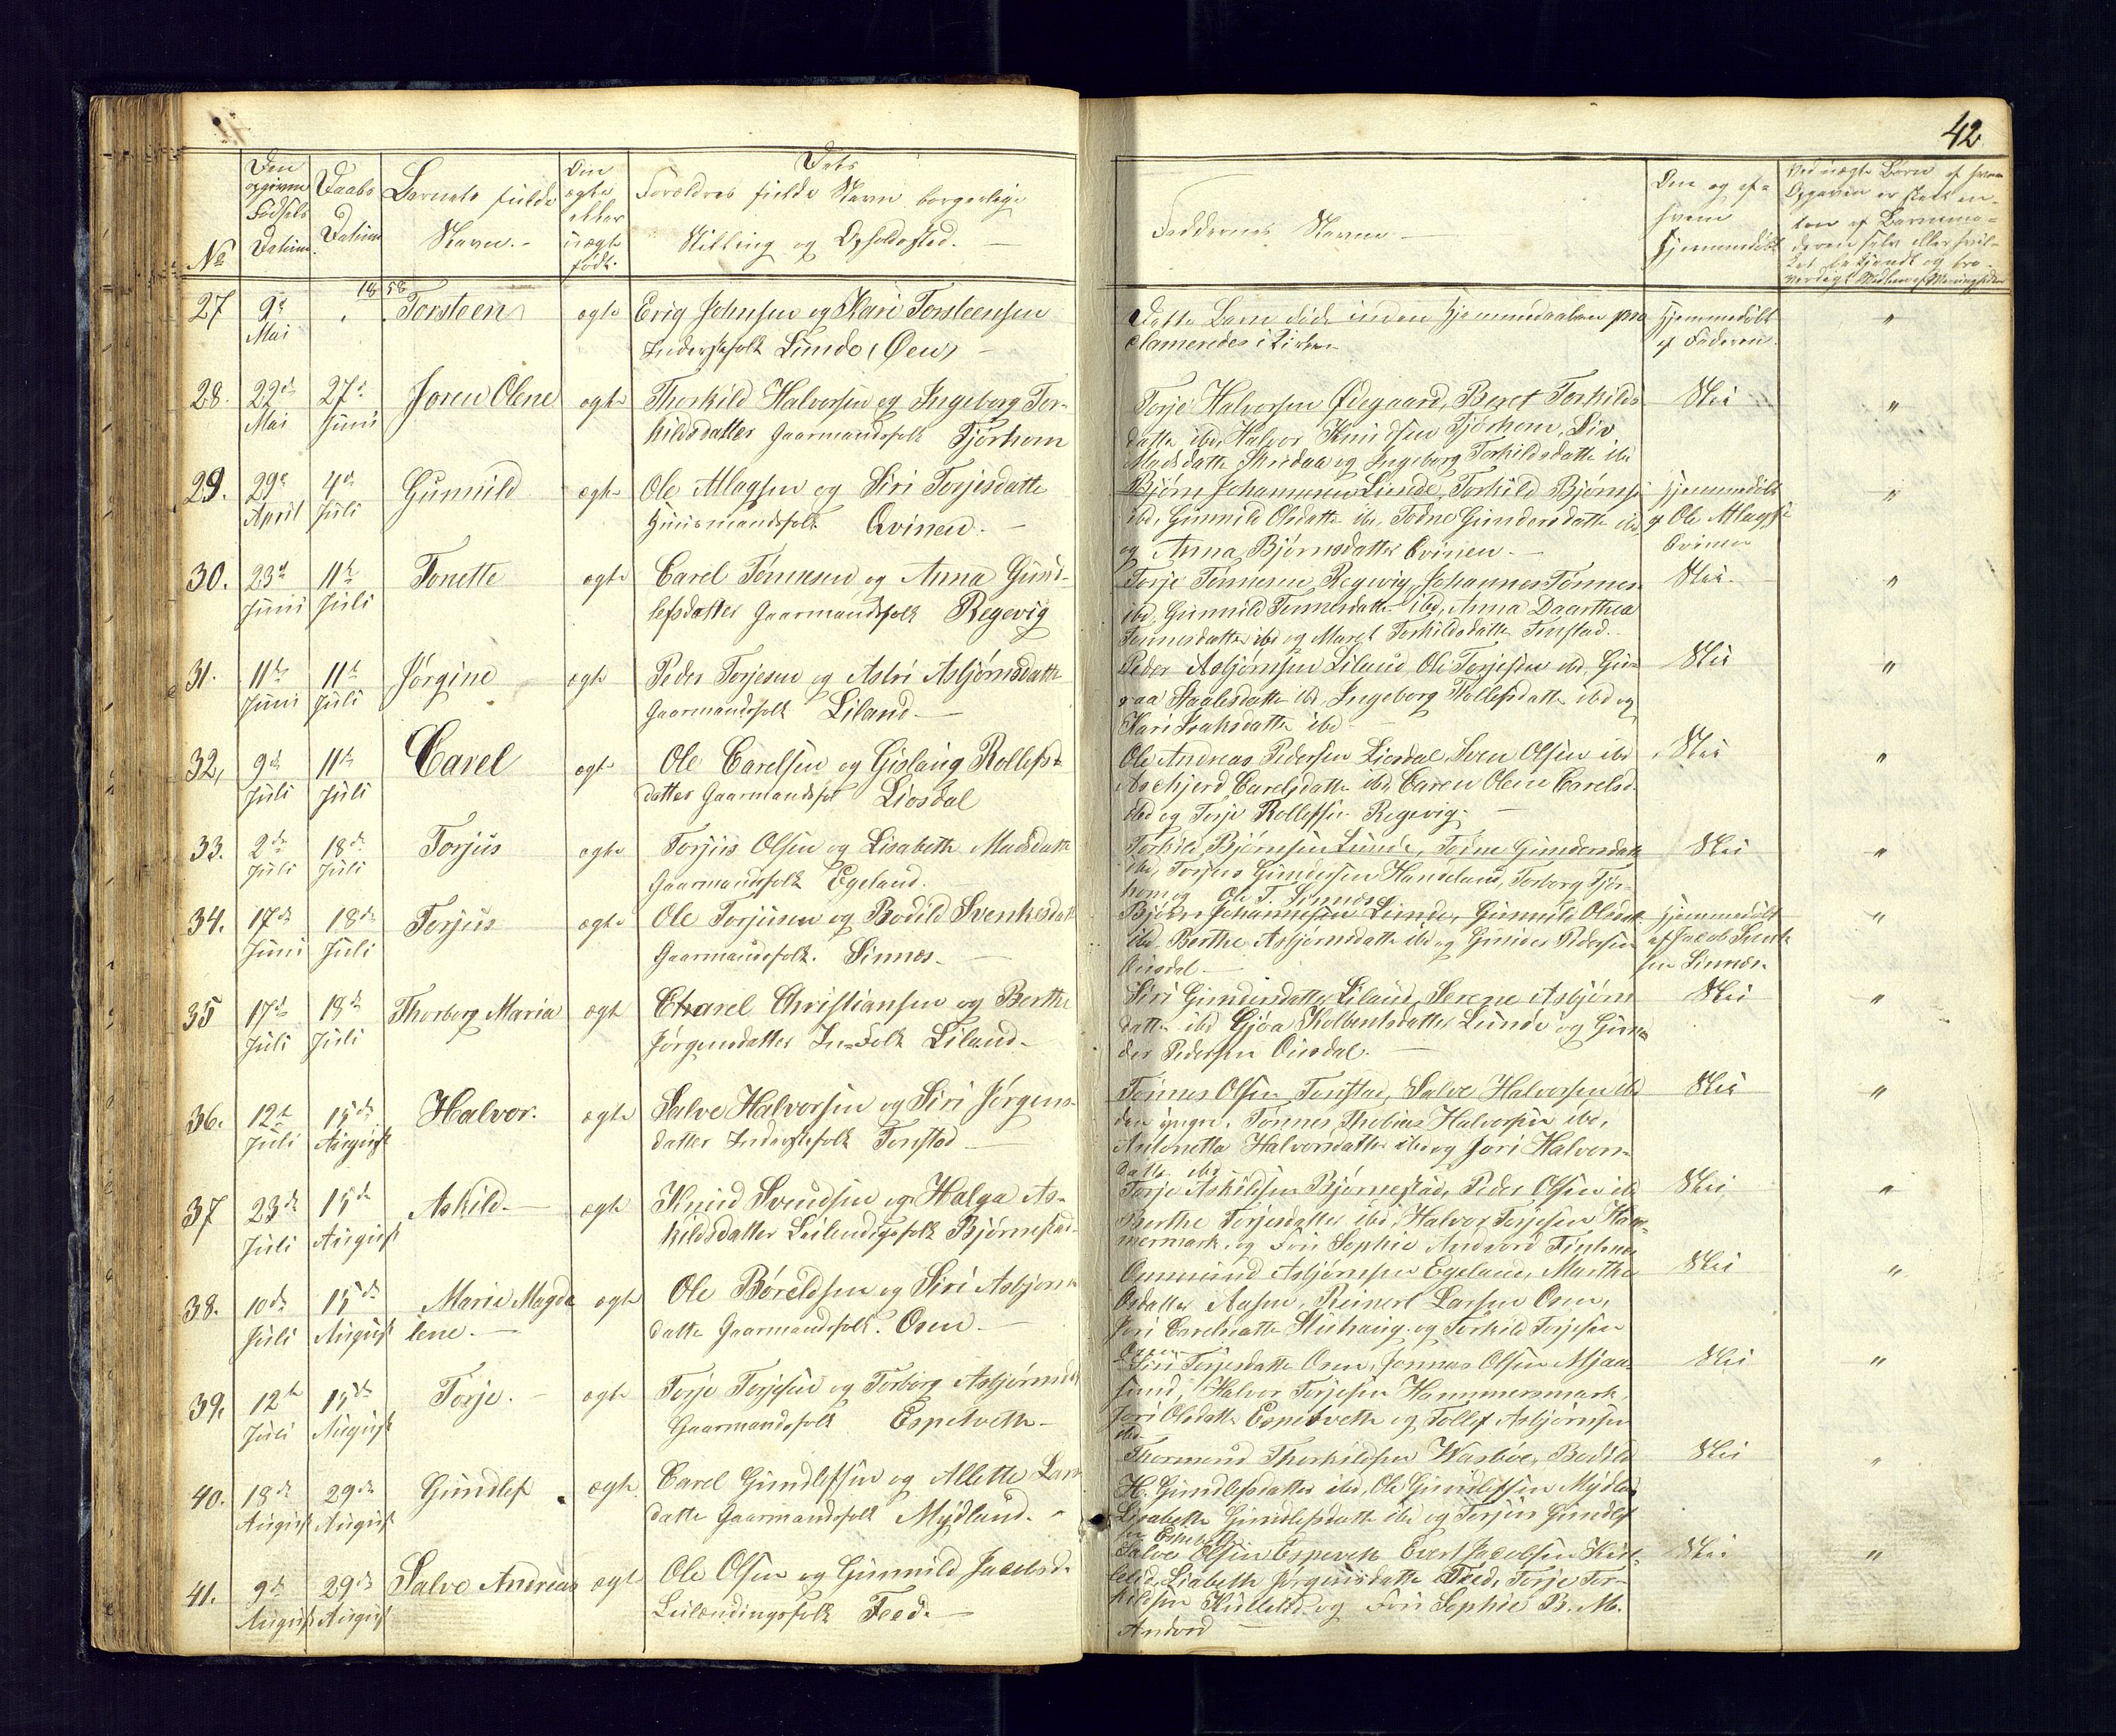 42
No
Den opgivne Fødsels Datum.
Daabs Datum
Barnets fulde Navn.-
Om ægte eller uægte født.
Dets
Forældres fulde Navn borgerlige
Stilling og Opholdssted. -
Faddernes Navne -
Om og af hvem hjemmedøbt
Ved uægte Børn af hvem
Opgaven er skeet en-
ten af Barnemo-
deren selv eller hvil-
ket bekjendt og tro-
værdigt Medlem af Menigheden
1858
27 9de Mai . Torsteen ægte Erig Johnsen og Kari Torsteensen
Inderstefolk Lunde (Øen) -
Dette Barn døde inden Hjemmedaaben pro
clameredes i Kirken
Hjemmedøbt
af Faderen.
"
28. 22de Mai 27de Juni Joren Olene ægte Thorkild Halvorsen og Ingeborg Tor-
kildsdatter Gaarmandsfolk Tjørhom
Torje Halvorsen Ødegaard, Beret Torkilds
datte ibd, Halvor Knudsen Tjørhom, Liv
Madsdatte Skredaa og Ingeborg Torkildsdatte ibd
Nei
"
29. 29de April 4de Juli Gunnild ægte Ole Allagsen og Siri Torjesdatte
Huusmandsfolk Qvinen. -
Bjørn Johannesen Lunde, Torkild Bjørns
ibd, Gunnild Olsdatte ibd, Todne Gundersdatte ibd
og Anna Bjørnsdatter Qvinen -
Hjemmedøbt
af Ole Allags
Qvinen
"
30. 23de Juni 11te Juli Tonette ægte Carel Tønnesen og Anna Gund-
lefsdatter Gaarmandsfolk Regevig
Torje Tønnesen Regevig, Johannes Tønnes
ibd, Gunnild Tønnesdatte ibd, Anna Daarthea
Tønnesdatte ibd og Maret Torkildsdatte Tonstad.
Nei.
"
31. 11te Juni 11te Juli Jørgine ægte Peder Torjesen og Astri Asbjørnsdatte
Gaarmandsfolk Liland -
Peder Asbjørnsen Liland Ole Torjesen ibd, Gu-
roa Staalesdatte ibd, Ingeborg Rollefsdatte ibd og
Kari Isaksdatte ibd -
Nei
"
32, 9de Juli 11te Juli Carel ægte Ole Carelsen og Gislaug Rollefs-
datter Gaarmandsfol Liosdal
Ole Andreas Pedersen Liosdal, Sven Olsen ibd
Aschjerd Carelsdatte ibd, Caren Olene Carelsd.
ibd og Torje Rollefsen Regevig. -
Nei
"
33. 2de Juli 18de Juli Torjus ægte Torjus Olsen og Lisabeth Madsdatte
Gaarmandsfolk Egeland.
Torkild Bjørnsen Lunde, Todne Gundersdatte
ibd, Torjus Gundersen Haneland, Torborg Tjør-
hom og Ole T. Sinnæs
Nei
"
34. 17de Juni 18de Juli Torjus ægte Ole Torjusen og Bodild Svenkesdatte
Gaarmandsfolk. Sinnes. -
Bjørn Johannesen Lunde, Gunnild Olsdat.
ibd. Berthe Asbjørnsdatte ibd og Gunder Pedersen
Ousdal -
Hjemmedøbt
af Jacob Svenk
sen Sinnes.
"
35 17de Juli 18de Juli Thorborg Maria ægte Charel Christiansen og Berthe
Jørgensdatter In=Folk Liland -
Siri Gundersdatter Liland, Serene Asbjørns
datte ibd Gjøa Kolbentsdatter Lunde og Gun-
der Pedersen Ousdal. -
Nei
"
36. 12te Juli 15de August Halvor. ægte Salve Halvorsen og Siri Jørgens-
datter Inderstefolk Tonstad -
Tønnes Olsen Tonstad, Salve Halvorsen ibd
den yngre, Tønnes Thobias Halvorsen ibd,
Antonetta Halvorsdatter ibd og Jori Halvors-
datte ibd -
Nei
"
37 23de Juli 15de August Askild - ægte Knud Svendsen og Halga As-
kildsdatter Leilendigsfolk Bjørnestad.
Torje Askildsen Bjørnestad, Peder Olsen ibd
Berthe Torjesdatter ibd, Halvor Torjesen Ham-
mermark. og Frü Sophie Andvord
Nei
"
38. 10de Juli 15de August Marie Magda
lene. - ægte Ole Børeldsen og Siri Asbjørns
datte Gaarmandsfolk. Osen -
Ommund Asbjørnsen Egeland, Marthe
Osdatter Aasen, Reinert Larsen Osen,
Jori Carelsdatte og Torkild Torjesen
Osen
Nei
"
39. 12te Juli 15de August Torje. - ægte Torje Torjesen og Torborg Asbjørnsdt
Gaarmandsfolk Espetveth -
Siri Torjesdatte Osen, Jonnas Olsen Mjaa-
sund, Halvor Torjesen Hammersmark,
Jori Olsdatte Espetveth og Tollef Asbjørnsen
ibd
Nei
"
40. 18de August 29de August Gundlef . ægte Carel Gundlefsen og Allette Lars
datte Gaarmandsfolk Mydland. -
Thormund Thorkildsen Wasbøe, Bodild
H. Gundlefsdatter ibd, Ole Gundlefsen Mydland
Lisabeth Gundlefsdatte ibd og Torjus Gundlef
sen Espetveth
Nei
"
41. 9de August 29de August Salve Andreas ægte Ole Olsen og Gunnild Jacobsd.
Leilændingsfolk Feed. -
Salve Olsen Espeveth Evert Jacobsen
Lisabeth Jørgensdatte Feed, Torje Tor-
kildsen og Frü Sophie B. M.
Andvord -
Nei
"